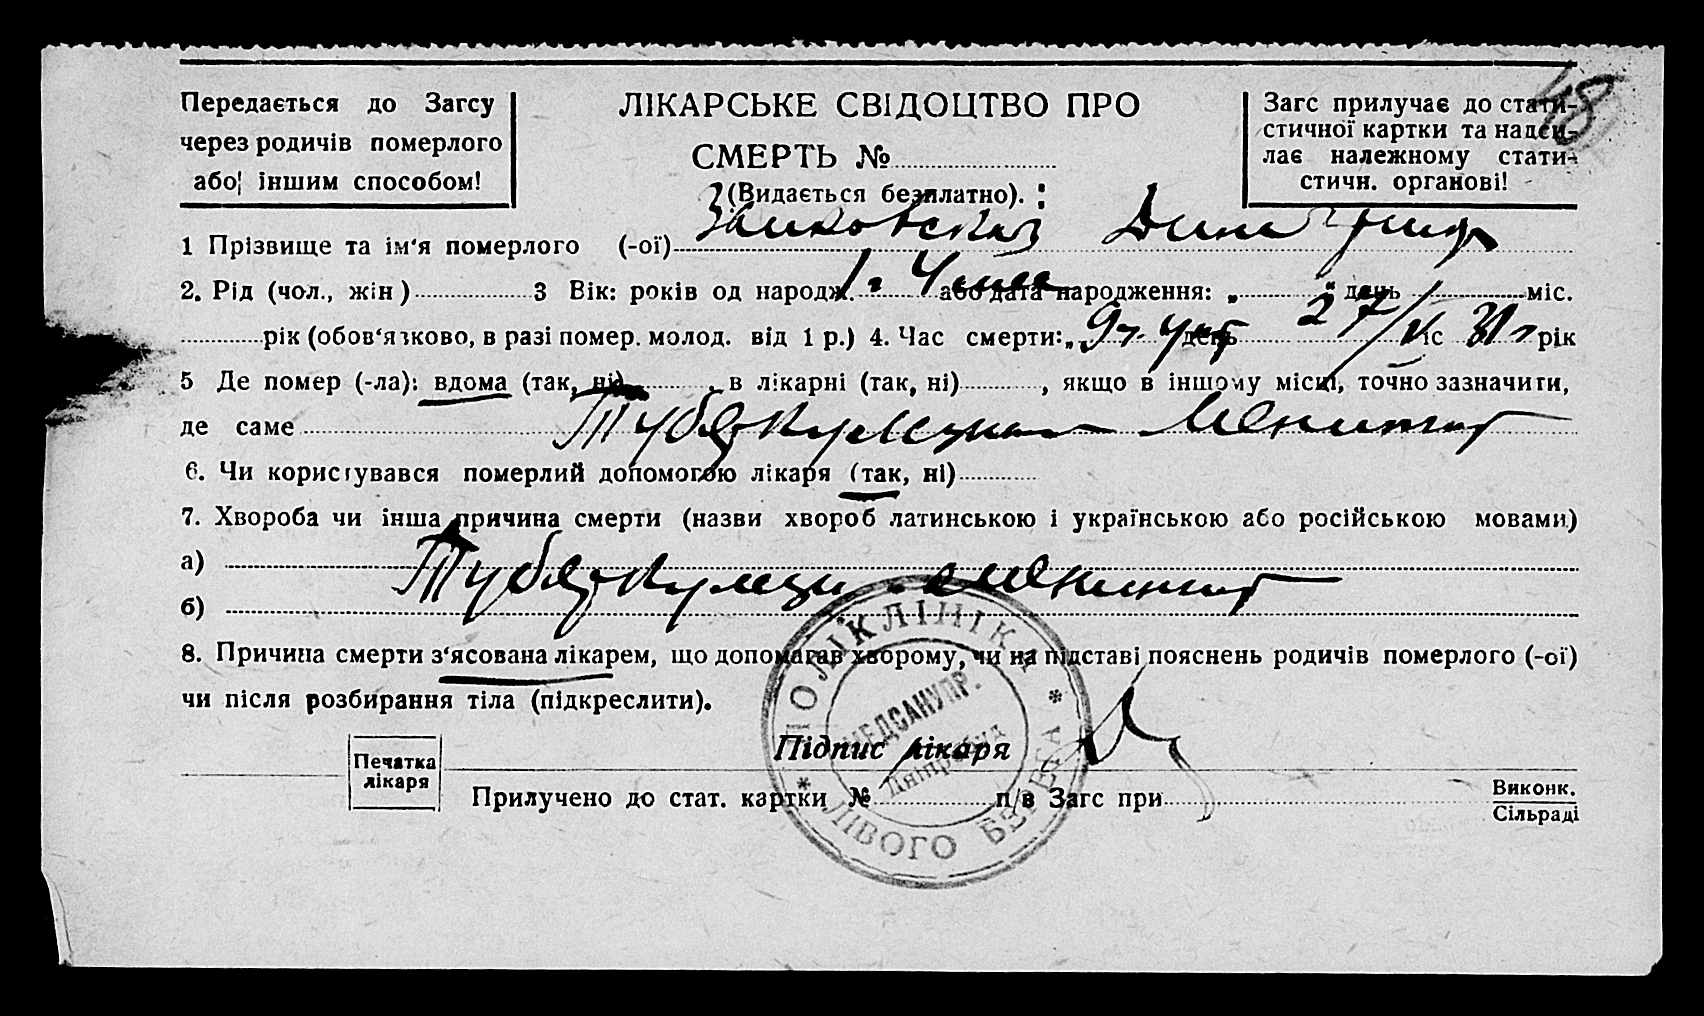 48
Передається до Загсу
через родичів померлого
або іншим способом!
ЛІКАРСЬКЕ СВІДОЦТВО ПРО
СМЕРТЬ №
(Видається безплатно).
Загс прилучає до стати-
стичної картки та надси-
лає належному стати-
стичн. органові!
1 Прізвище та ім'я померлого (-ої)
2. Рід (чол., жін) 3 Вік: років од народж. 1 г 4 або дата народження: „ “ день міс.
рік (обов'язково, в разі помер. молод. від 1 р.) 4. Час смерти: „ 9 ч. утр день 27/ міс 31 г рік
5 Де помер (-ла): вдома (так, ні) , в лікарні (так, ні) , якщо в іншому місці, точно зазначити,
де саме Туберкулезный Менингит
6. Чи користувався померлий допомогою лікаря (так, ні)
7. Хвороба чи інша причина смерти (назви хвороб латинською і українською або російською мовами)
а) Туберкулезн. менингит
б)
8. Причина смерти з'ясована лікарем, що допомагав хворому, чи на підставі пояснень родичів померлого (-ої)
чи після розбирання тіла (підкреслити).
ПОЛІКЛІНІКА * ЛІВОГО БЕРЕГА *
МЕДСАНУПР.
Печатка
лікаря
Підпис лікаря
Прилучено до стат. картки № п/в Загс при Виконк.
Сільраді